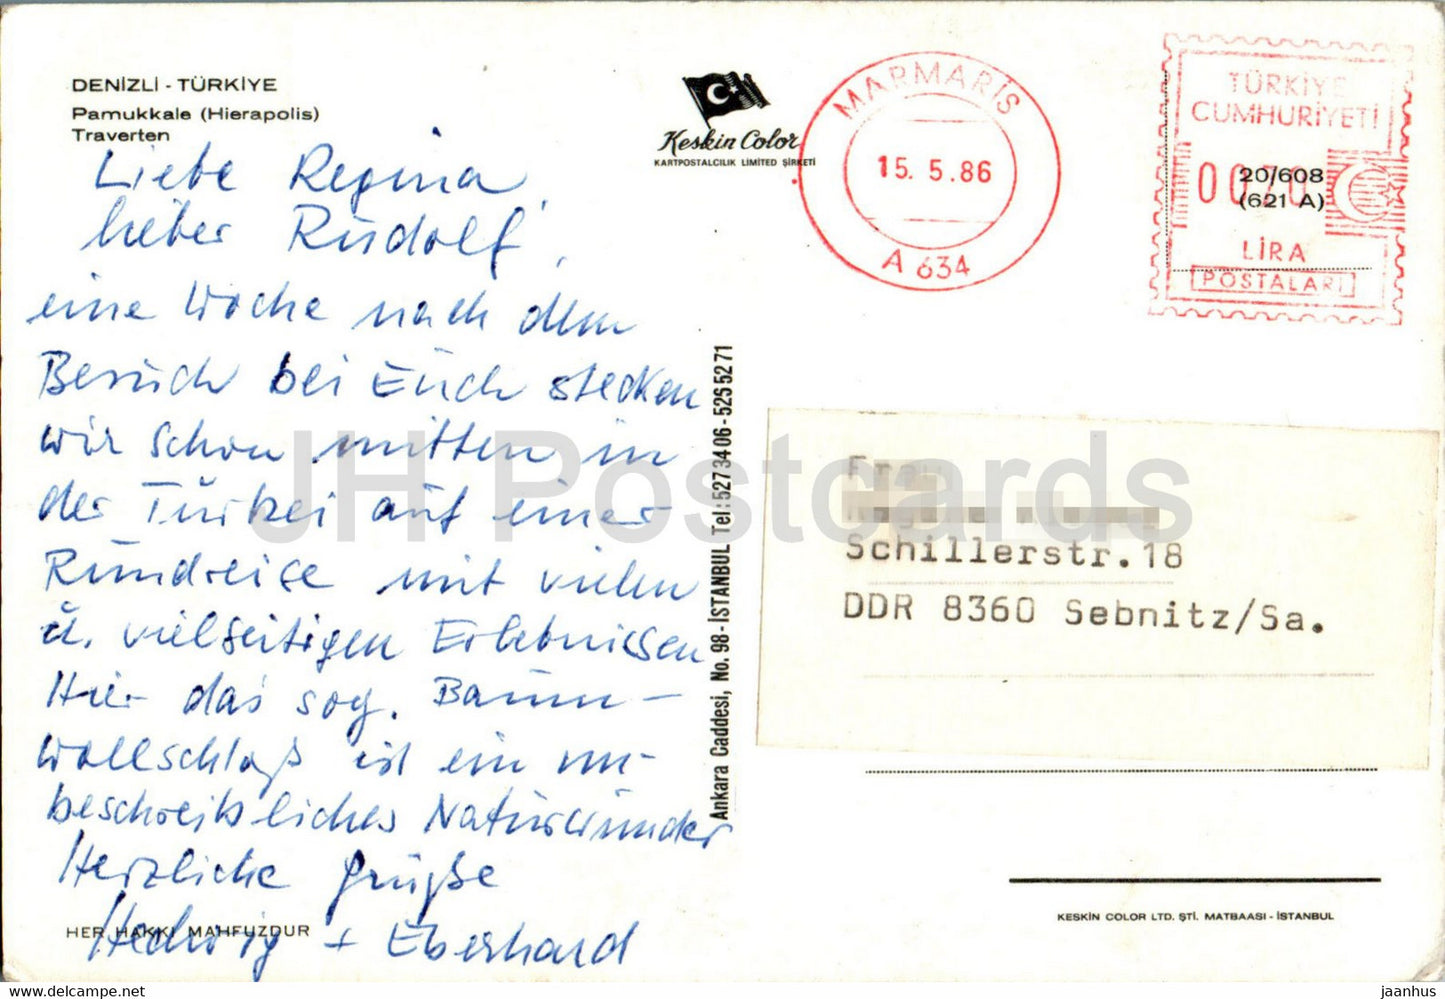 DENİZLİ - TÜRKİYE
Pamukkale (Hierapolis)
Traverten
Keskin Color
KARTPOSTALCILIK LIMITED ŞİRKETİ
MARMARİS
15. 5.86
A 634
TÜRKİYE
CUMHURİYETİ
20/608
(621 A)
LİRA
POSTALARI
Liebe Regina,
lieber Rudolf,
eine Woche nach dem
Besuch bei Euch stecken
wir schon mitten in
der Türkei auf einer
Rundreise mit vielen
u. vielseitigen Erlebnissen
Hier das sog. Baum-
wollschloß ist ein un-
beschreibliches Naturwunder
Herzliche Grüße
Hedwig + Eberhard
HER HAKKI MAHFUZDUR
Ankara Caddesi, No. 98 - İSTANBUL Tel: 5273406-5255271
Frau
Schillerstr.18
DDR 8360 Sebnitz/Sa.
KESKİN COLOR LTD. ŞTİ. MATBAASI - İSTANBUL
JH Postcards
jaanhus ❘ www.delcampe.net